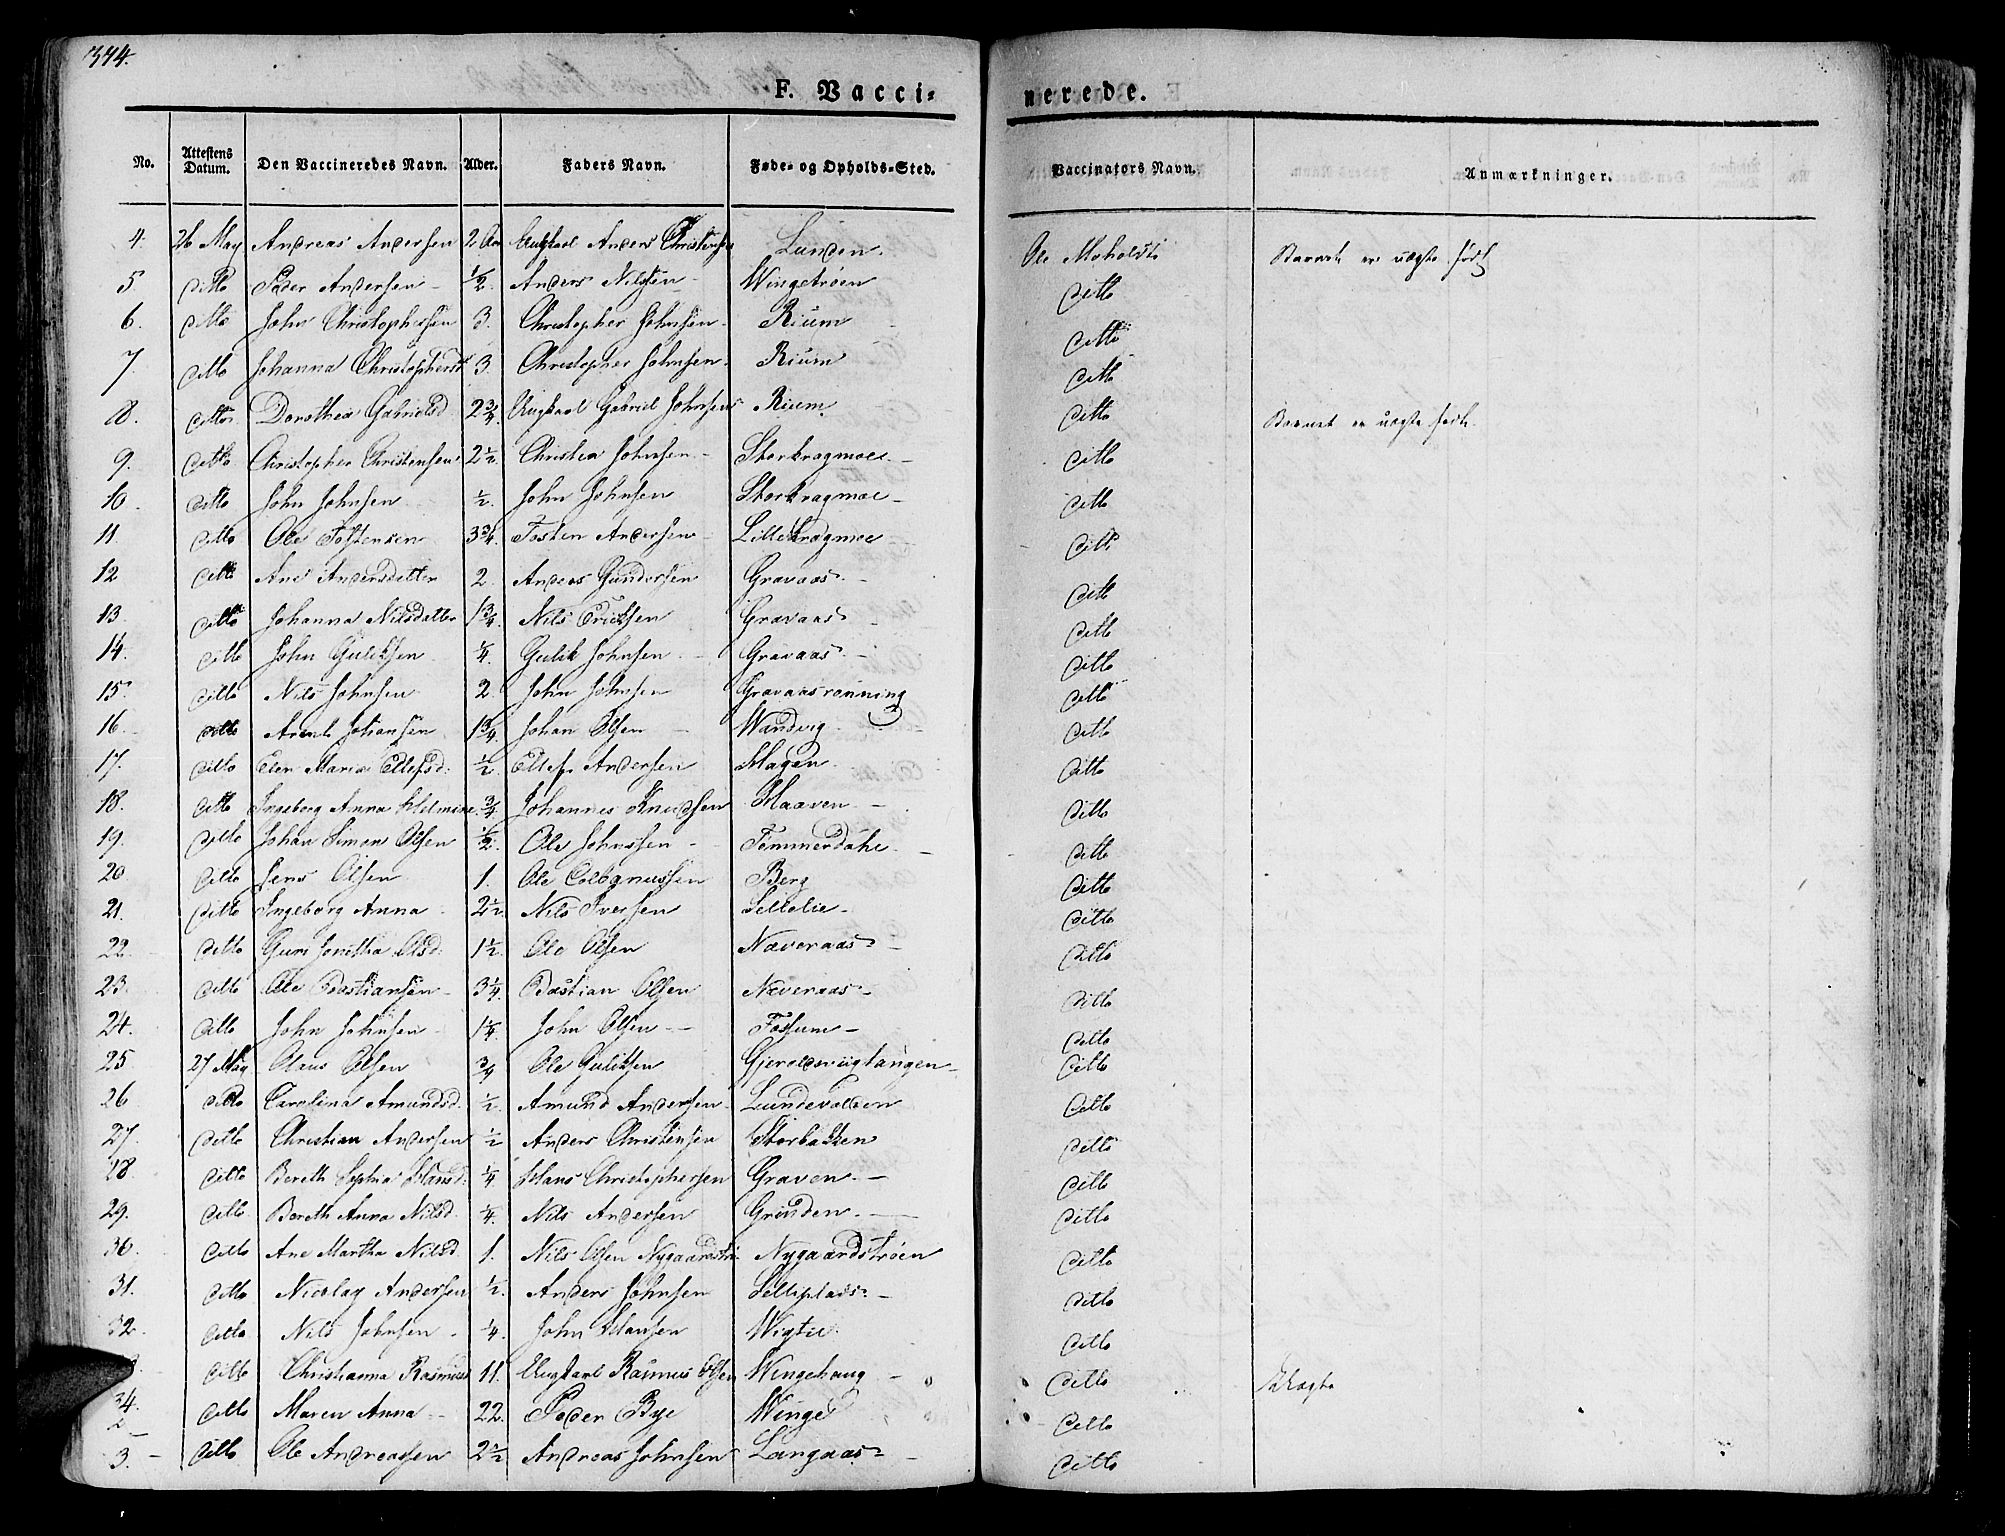 344.
F. Vacci=
nerede.
No. Attestens Datum. Den Vaccineredes Navn. Alder. Faders Navn. Føde- og Opholds-Sted. Vaccinators Navn. Anmærkninger.
4. 26 May Andreas Andersen 2 Aar Ungkarl Anders Christensen Lunden. Ole Moholdt Barnet er uægte født
5 Ditto Peder Andersen 1/2 Anders Nilsen Wingetrøen Ditto
6. Ditto John Christophersen 3. Christopher Johnsen Rium Ditto
7. Ditto Johanna Christophersd 3. Christopher Johnsen Rium Ditto
8. Ditto Dorothea Gabrielsd. 2 3/4. Ungkarl Gabriel Johnsen Rium Ditto Barnet er uægte født.
9. Ditto Christopher Christensen 2 1/2 Christen Johnsen Storkragmoe Ditto
10. Ditto John Johnsen 1/2. John Johnsen Storkragmoe Ditto
11. Ditto Ole Tostensen 3 3/4. Tosten Andersen Lillekragmoe Ditto
12 Ditto Ane Andersdatter 2. Anders Gundersen Gravaas Ditto
13 Ditto Johanna Nilsdatter 1 3/4. Nils Ericksen Gravaas Ditto
14. Ditto John Guliksen 1/4. Gulik Johnsen Gravaas Ditto
15. Ditto Nils Johnsen 2 John Johnsen Gravaasrønning Ditto
16. Ditto Arent Johansen 1 3/4 Johan Olsen Wandvig Ditto
17. Ditto Elen Maria Ellefsd. 1/2 Ellef Andersen Hagen Ditto
18. Ditto Ingeborg Anna 3/4 Johannes Knudsen Haaven Ditto
19. Ditto Johan Simon Olsen 1/2 Ole Johnsen Tømmerdahl Ditto
20. Ditto Jens Olsen 1. Ole Berg Ditto
21. Ditto Ingeborg Anna 2 1/2 Nils Iversen Sellelie Ditto
22. Ditto Guri Olsd. 1 1/2 Ole Olsen Næveraas Ditto
23. Ditto Ole Bastiansen 3 1/4 Bastian Olsen Næveraas Ditto
24. Ditto John Johnsen 1 1/4. John Olsen Fossum Ditto
25 27 May Claus Olsen 3/4 Ole Guliksen Ditto
26 Ditto Carolina Amundsd. 1/2 Amund Andersen Lundevolden Ditto
27. Ditto Christian Andersen 1/2 Anders Christensen Storbakken Ditto
28 Ditto Bereth Sophia Hansd. 1/4 Hans Christophersen Graven Ditto
29. Ditto Bereth Anna Nilsd. 1/4. Nils Andersen Grinden Ditto
30. Ditto Ane Martha Nilsd. 1. Nils Olsen Nygaardstrøen Ditto
31. Ditto Nicolay Andersen 1/2 Anders Johnsen Selliplads Ditto
32. Ditto Nils Johnsen 1/4. John Hansen Ditto
Ditto Christianna Rasmusd 11. Ungkarl Rasmus Olsen Wingehaug Ditto Uægte
34. Ditto Maren Anna 22. Peder Bye Winge Ditto
3. Ditto Ole Andreassen 2 1/2 Andreas Johnsen Langaas Ditto